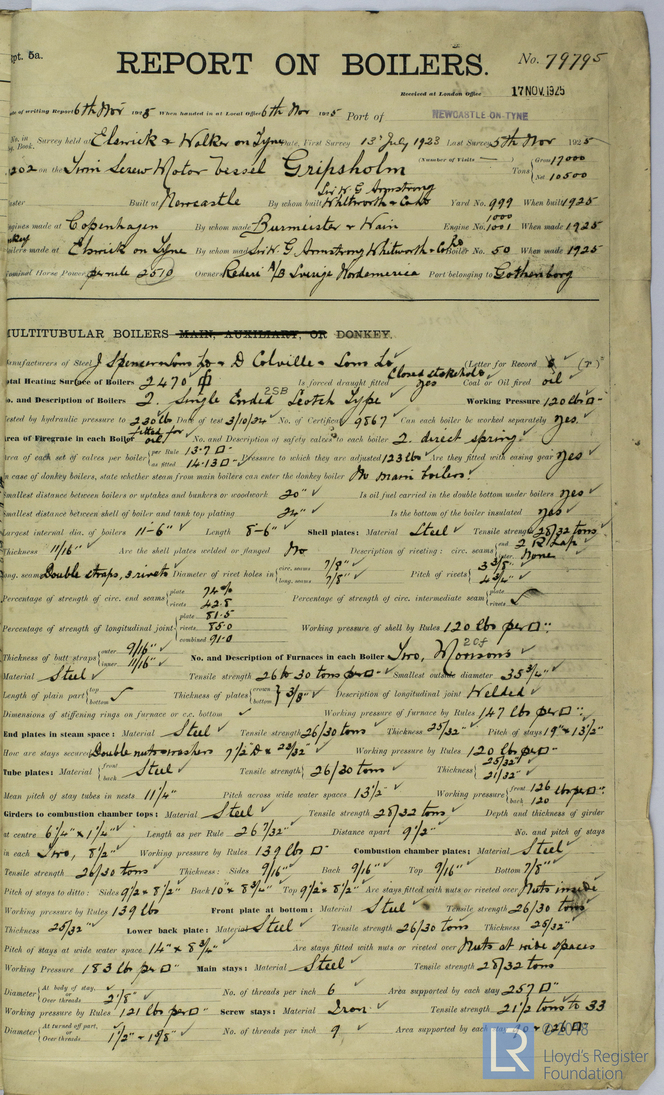 pt. 5a.
REPORT ON BOILERS.
No. 79795
Received at London Office 17 NOV. 1925
of writing Report 6th Nov 1925 When handed in at Local Office 6th Nov 1925 Port of NEWCASTLE ON TYNE
No. in Book. Survey held at Elswick & Walker on Tyne Date, First Survey 13th July 1923 Last Survey 5th Nov 1925
(Number of Visits —)
202 on the Twin Screw Motor Vessel Gripsholm Tons Gross 17000 Net 10500
Built at Newcastle By whom built Sir W. G. Armstrong Whitworth & Co Ld Yard No. 999 When built 1925
ngines made at Copenhagen By whom made Burmeister & Wain Engine No. 1000 1001 When made 1925
oilers made at Elswick on Tyne By whom made Sir W. G. Armstrong Whitworth & Co Ld Boiler No. 50 When made 1925
ominal Horse Power per rule 2510 Owners Rederi A/B Sverige Nordamerica Port belonging to Gothenburg
MULTITUBULAR BOILERS MAIN, AUXILIARY, OR DONKEY.
anufacturers of Steel J Spencer & Sons Ld & D Colville & Sons Ld (Letter for Record S (r.))
otal Heating Surface of Boilers 2470 Is forced draught fitted Closed stokehold yes Coal or Oil fired oil
o. and Description of Boilers 2. Single Ended Scotch Type 2SB Working Pressure 120 lb □"
ested by hydraulic pressure to 230 lb Date of test 3/10/24 No. of Certificate 9867 Can each boiler be worked separately yes.
Area of Firegrate in each Boiler fitted for oil! No. and Description of safety valves to each boiler 2. direct spring.
Area of each set of valves per boiler per Rule 13.7 □" as fitted 14.13 □" Pressure to which they are adjusted 123 lb Are they fitted with easing gear yes
n case of donkey boilers, state whether steam from main boilers can enter the donkey boiler No main boilers.
Smallest distance between boilers or uptakes and bunkers or woodwork 20" Is oil fuel carried in the double bottom under boilers yes
Smallest distance between shell of boiler and tank top plating 24" Is the bottom of the boiler insulated yes
Largest internal dia. of boilers 11-6" Length 8-6" Shell plates: Material Steel Tensile strength 28/32 tons
Thickness 11/16" Are the shell plates welded or flanged No Description of riveting: circ. seams end 2 R Lap inter. None
ong. seams Double straps, 3 rivets Diameter of rivet holes in circ. seams 7/8" long. seams 7/8" Pitch of rivets 3 3/8" 4 3/4"
Percentage of strength of circ. end seams plate 74% rivets 42.8 Percentage of strength of circ. intermediate seam plate rivets
Percentage of strength of longitudinal joint plate 81.5 rivets 85.0 combined 91.0 Working pressure of shell by Rules 120 lb per □"
Thickness of butt straps outer 9/16" inner 11/16" No. and Description of Furnaces in each Boiler Two, Morisons 2cf
Material Steel Tensile strength 26 to 30 tons per □" Smallest outside diameter 35 3/4"
Length of plain part top bottom Thickness of plates crown bottom 3/8" Description of longitudinal joint Welded
Dimensions of stiffening rings on furnace or c.c. bottom Working pressure of furnace by Rules 147 lb per □"
End plates in steam space: Material Steel Tensile strength 26/30 tons Thickness 25/32" Pitch of stays 19" x 13 1/2"
How are stays secured Double nuts & washers 7 1/2 D x 23/32" Working pressure by Rules 120 lb per □"
Tube plates: Material front back Steel Tensile strength 26/30 tons Thickness 25/32" 21/32"
Mean pitch of stay tubes in nests 11 1/4" Pitch across wide water spaces 13 1/2" Working pressure front 126 back 120 lb per □"
Girders to combustion chamber tops: Material Steel Tensile strength 28/32 tons Depth and thickness of girder
at centre 6 1/4" x 1 1/4" Length as per Rule 26 7/32" Distance apart 9 1/2" No. and pitch of stays
in each Two, 8 1/2" Working pressure by Rules 139 lb □" Combustion chamber plates: Material Steel
Tensile strength 26/30 tons Thickness: Sides 9/16" Back 9/16" Top 9/16" Bottom 7/8"
Pitch of stays to ditto: Sides 9 1/2 x 8 1/2" Back 10" x 8 3/4" Top 9 1/2" x 8 1/2" Are stays fitted with nuts or riveted over Nuts inside
Working pressure by Rules 139 lbs Front plate at bottom: Material Steel Tensile strength 26/30 tons
Thickness 25/32" Lower back plate: Material Steel Tensile strength 26/30 tons Thickness 25/32"
Pitch of stays at wide water space 14" x 8 3/4" Are stays fitted with nuts or riveted over Nuts at wide spaces
Working Pressure 183 lb per □" Main stays: Material Steel Tensile strength 28/32 tons
Diameter At body of stay, or Over threads 2 7/8" No. of threads per inch 6 Area supported by each stay 257 □"
Working pressure by Rules 121 lb per □" Screw stays: Material Iron Tensile strength 21 1/2 tons to 33
Diameter At turned off part, or Over threads 1 1/2" & 1 5/8" No. of threads per inch 9 Area supported by each stay 90 & 126 □"
© 2018
LR
Lloyd's Register
Foundation